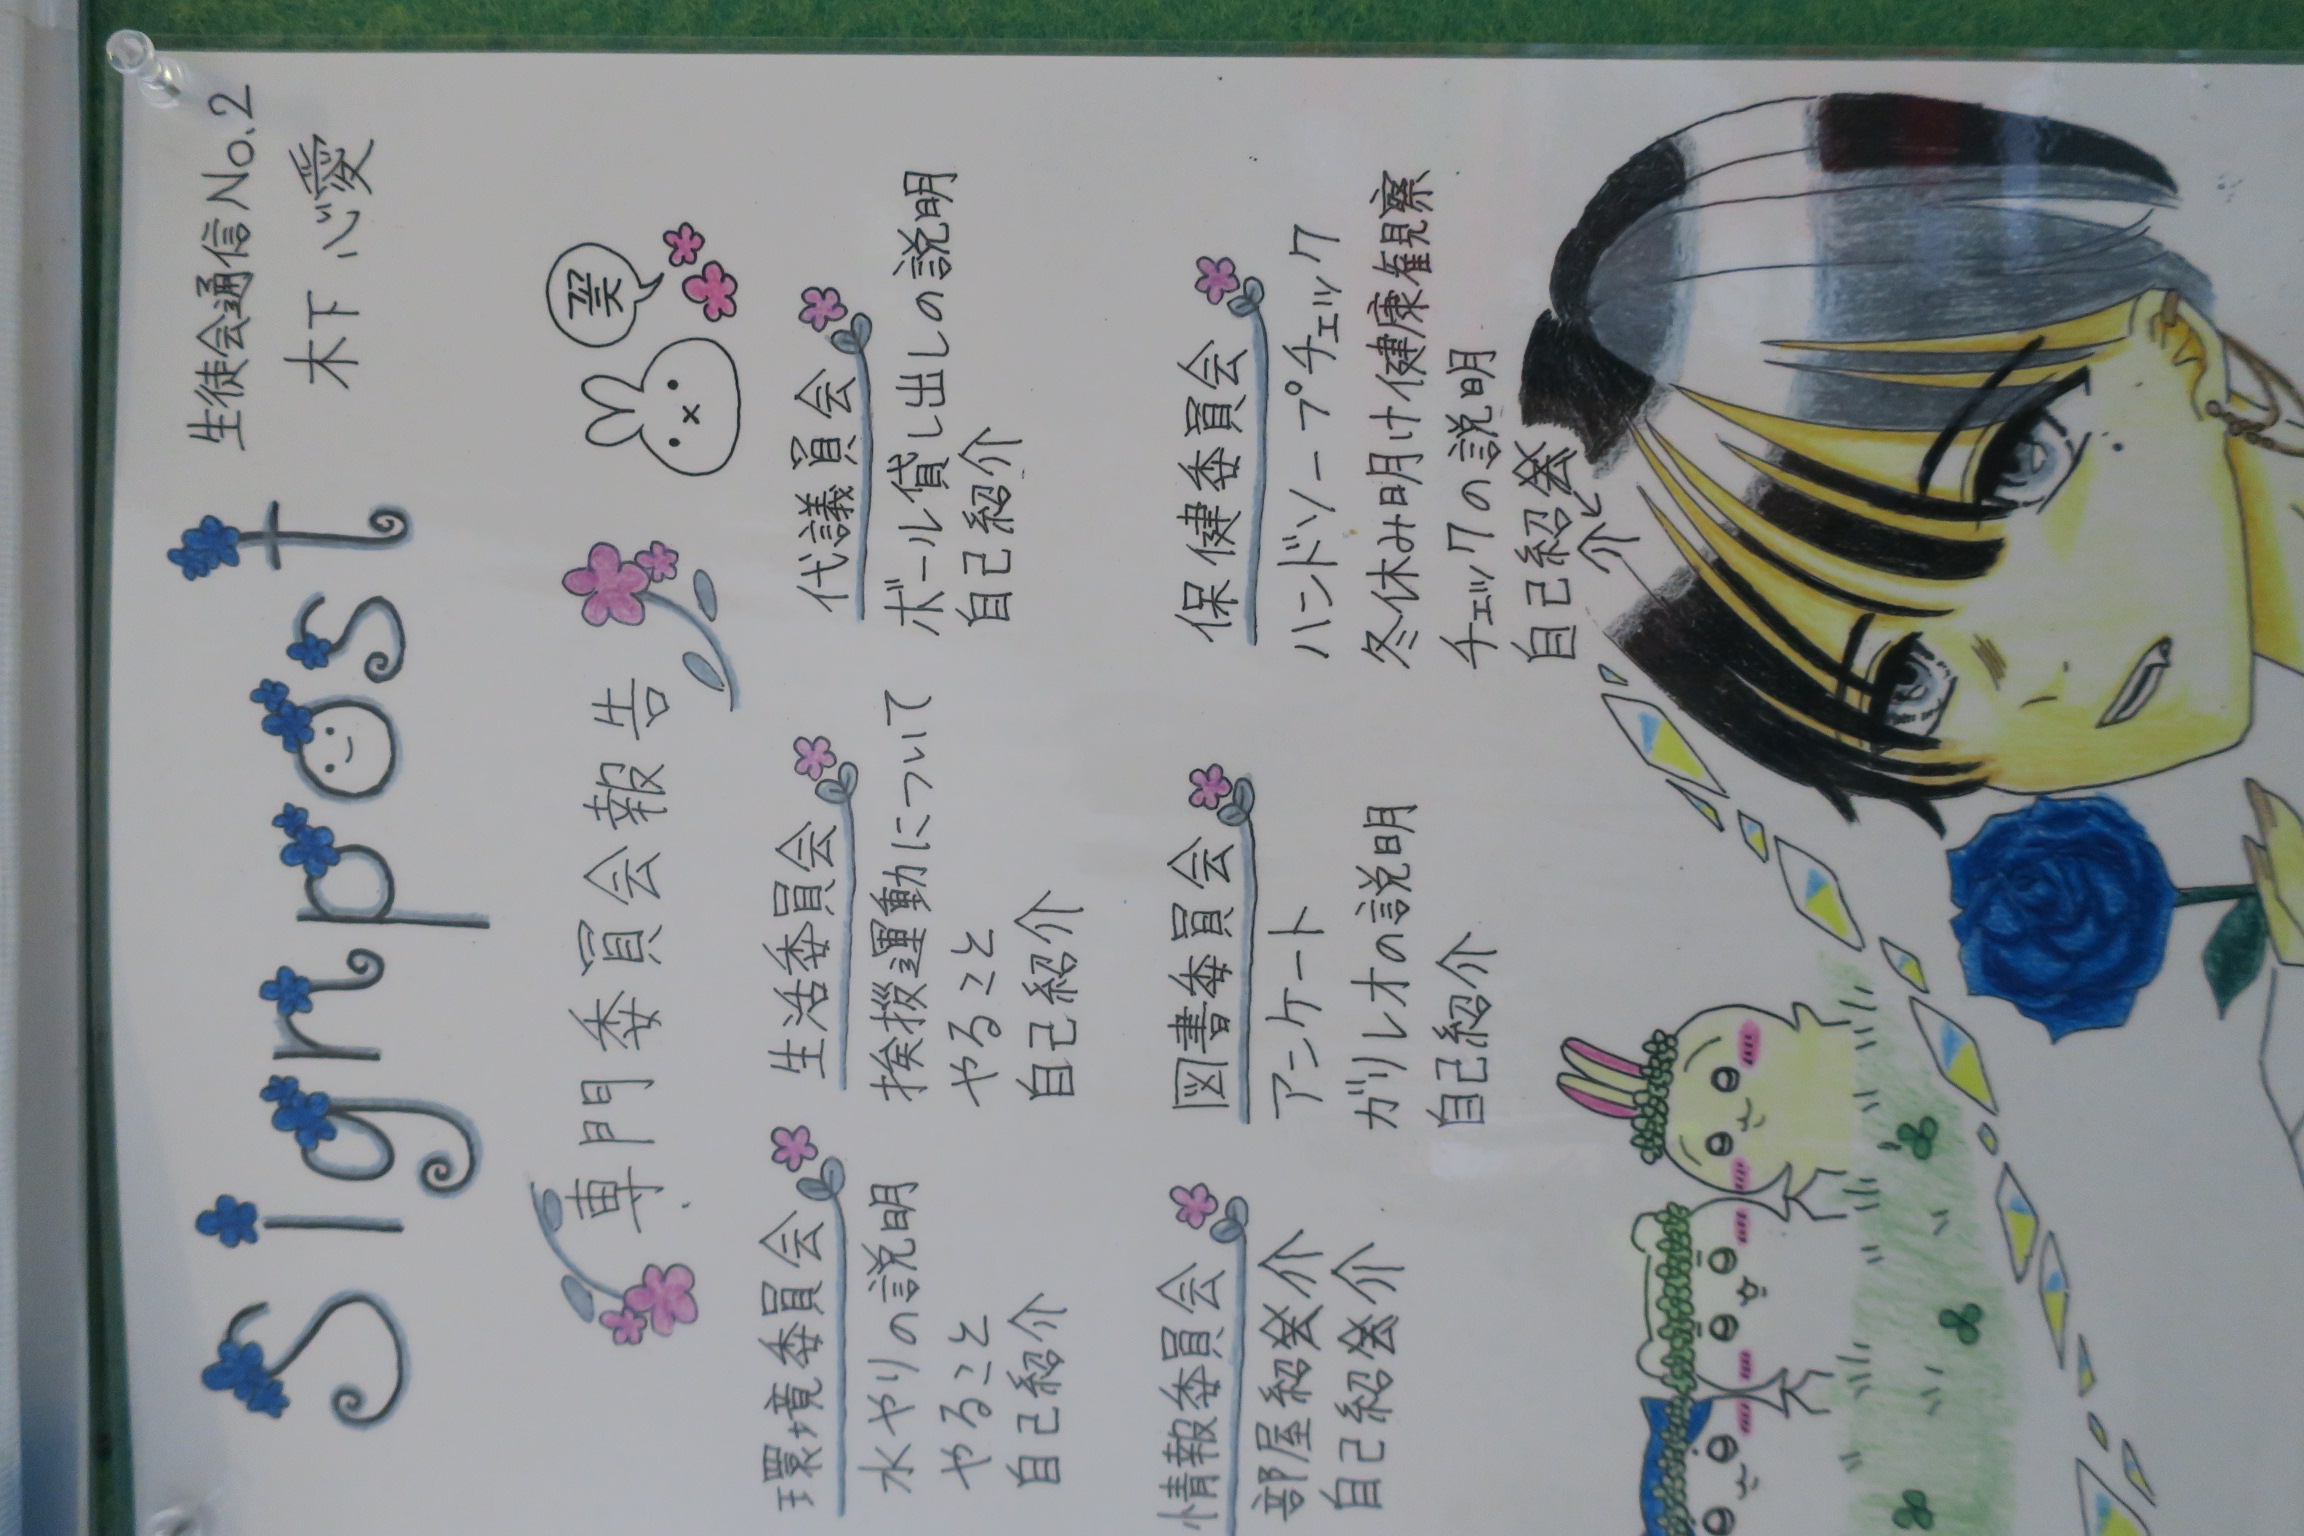 Signpost
生徒会通信No.2
木下 心愛
専門委員会報告
環境委員会
水やりの説明
やること
自己紹介
生活委員会
挨拶運動について
やること
自己紹介
代議員会
ボール貸し出しの説明
自己紹介
情報委員会
部屋紹介
自己紹介
図書委員会
アンケート
ガリレオの説明
自己紹介
保健委員会
ハンドソープチェック
冬休み明け健康観察
チェックの説明
自己紹介